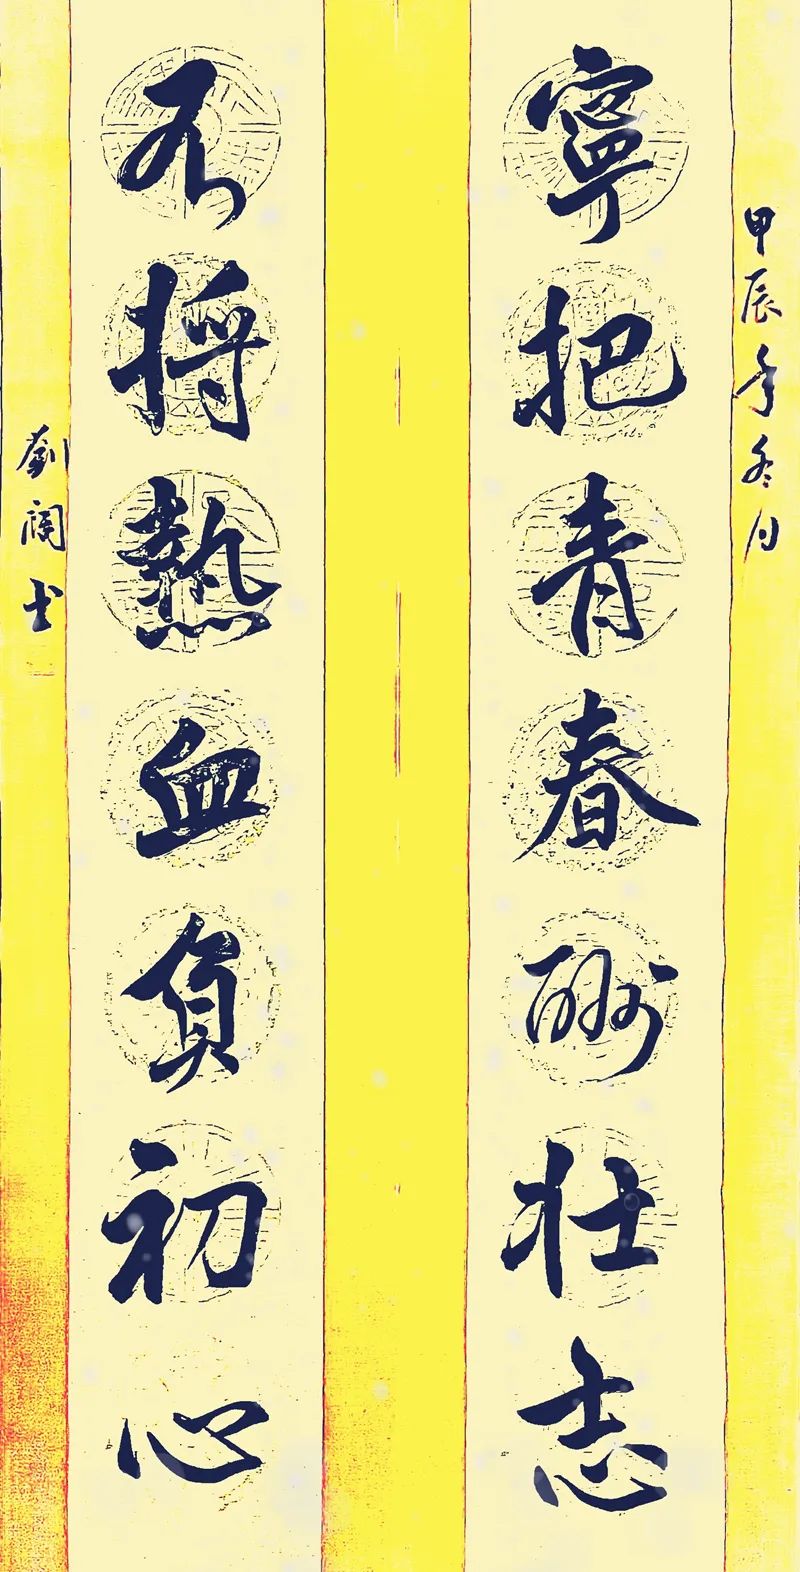 甲辰年冬月
寧把青春酬壯志
不将熱血負初心
劉书